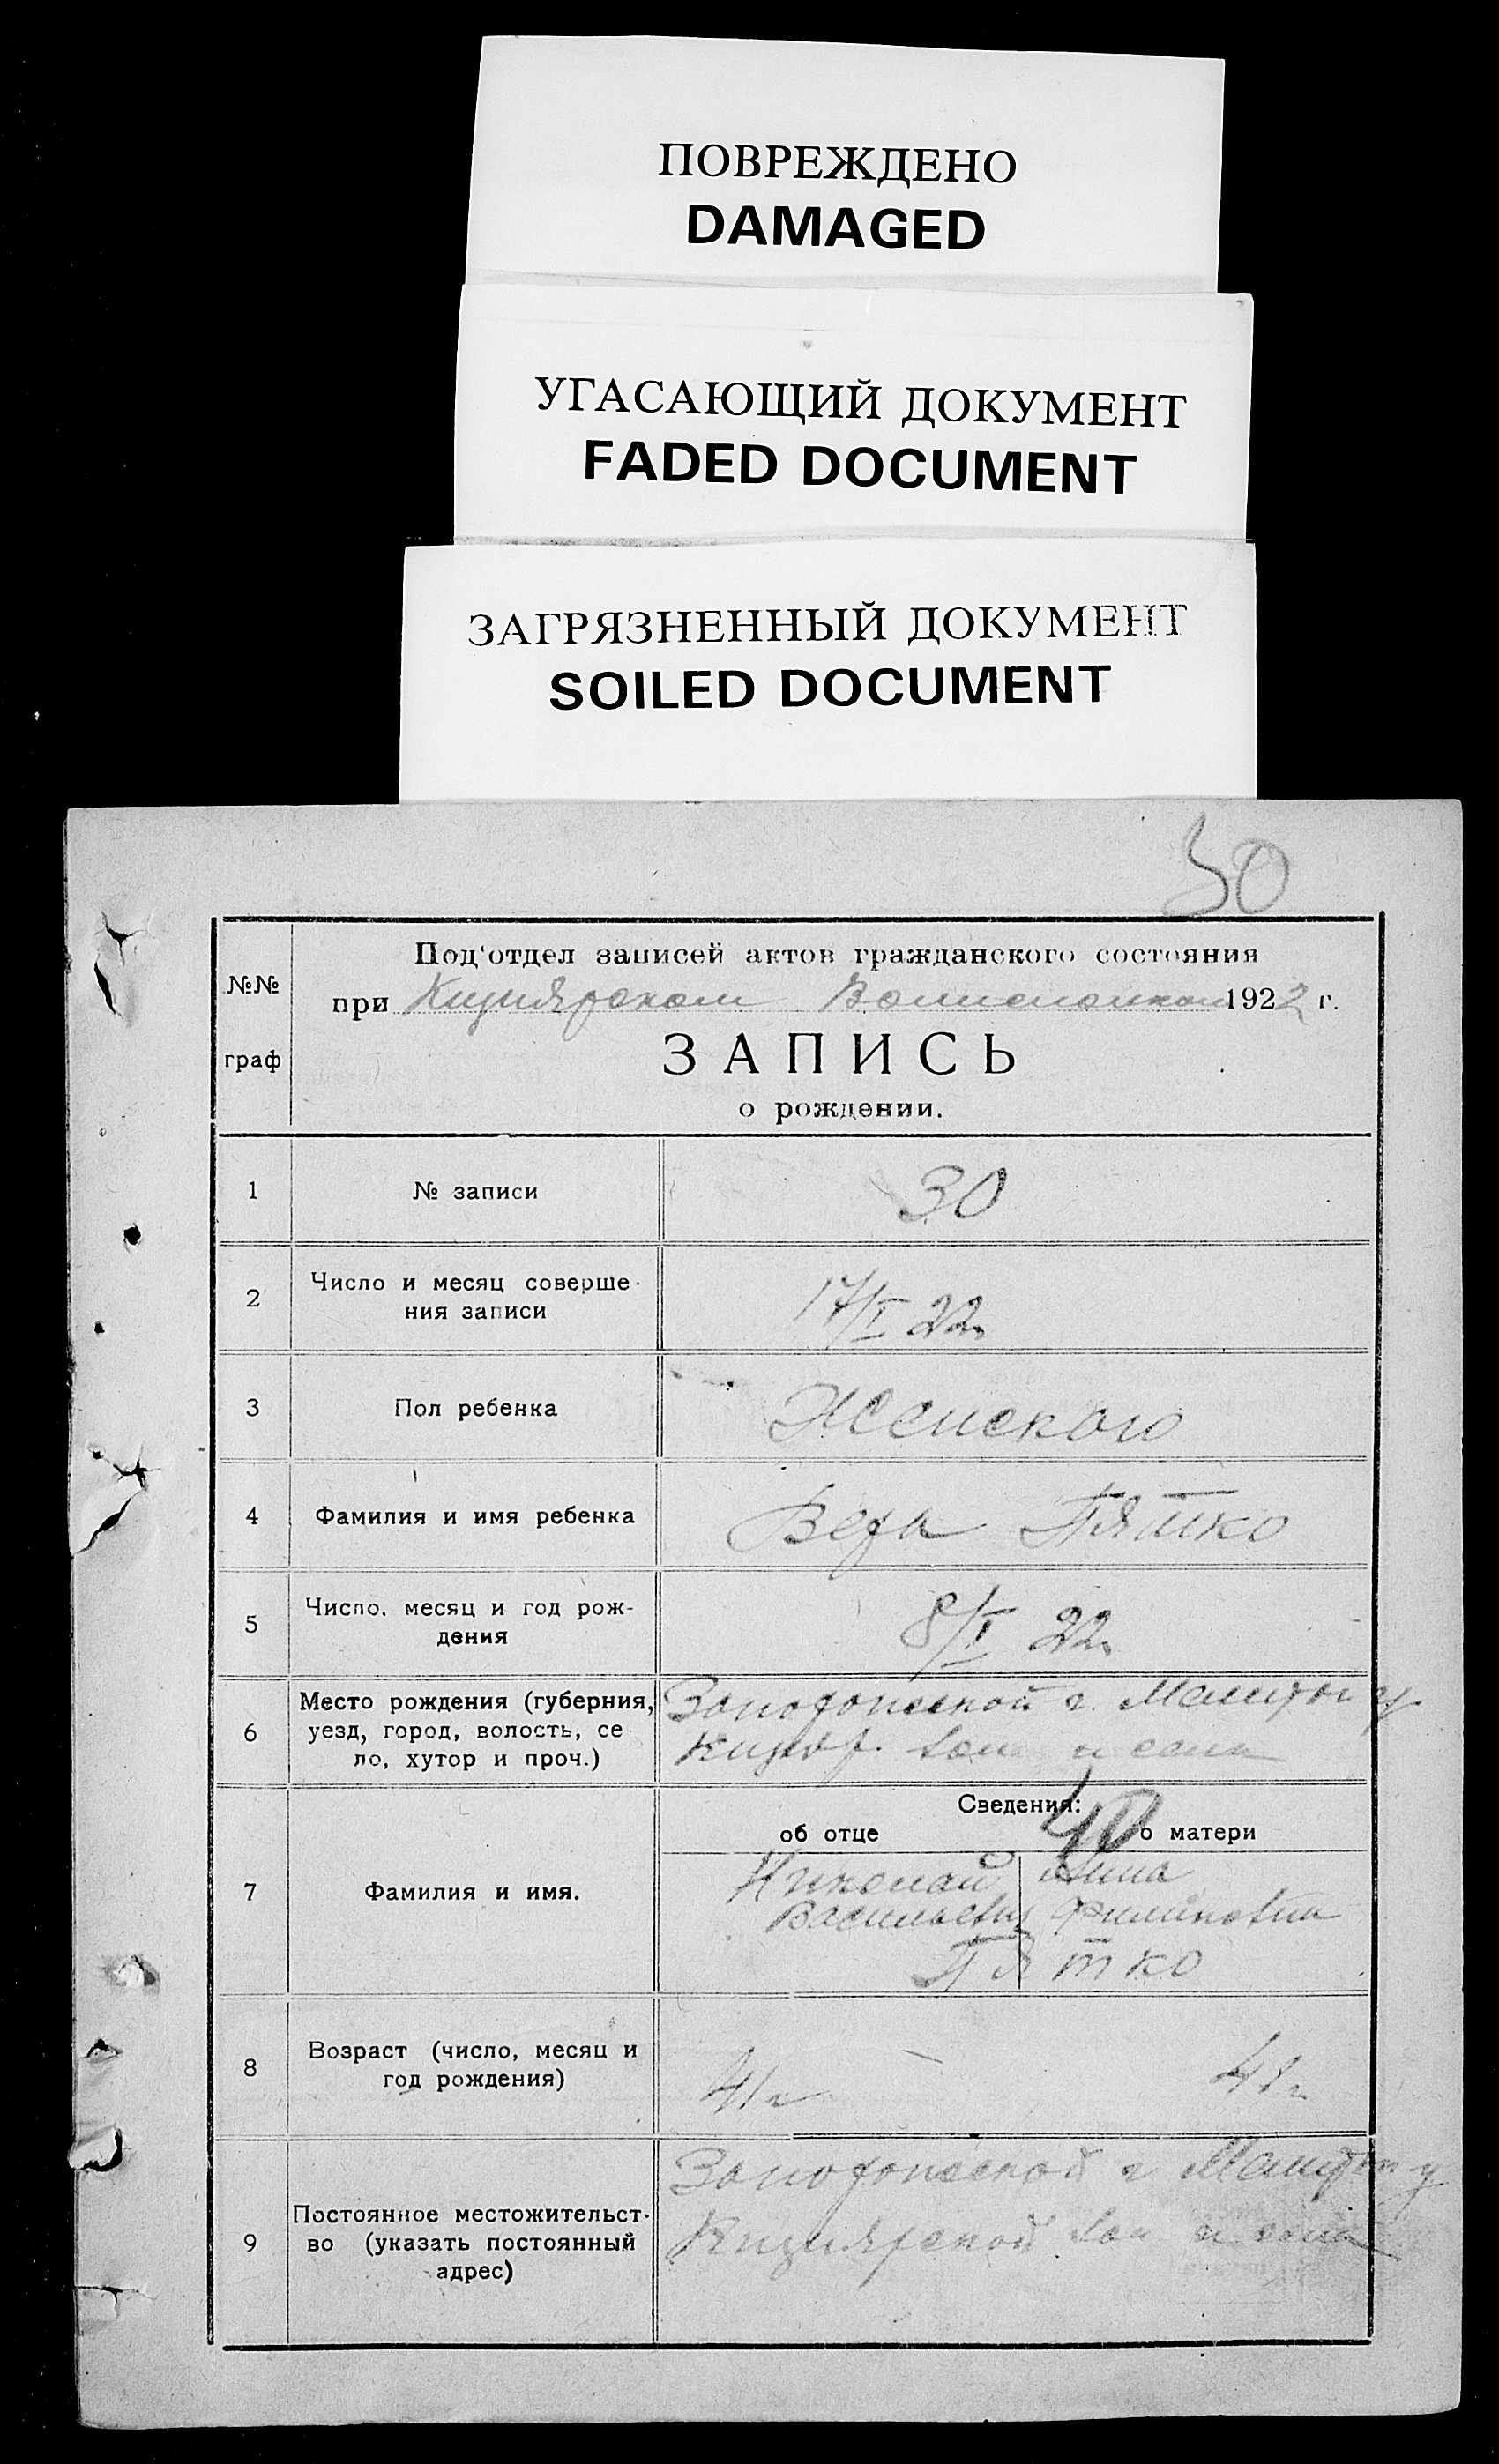 ПОВРЕЖДЕНО
DAMAGED
УГАСАЮЩИЙ ДОКУМЕНТ
FADED DOCUMENT
ЗАГРЯЗНЕННЫЙ ДОКУМЕНТ
SOILED DOCUMENT
30
№№ граф
Под'отдел записей актов гражданского состояния
при Кизиярском Волисполком 1922 г.
ЗАПИСЬ
о рождении.
1 № записи 30
2 Число и месяц соверше-
ния записи 17/I 22
3 Пол ребенка Женского
4 Фамилия и имя ребенка Вера Пятко
5 Число, месяц и год рож-
дения 8/I 22
6 Место рождения (губерния, Запорожской г. Мелитоп у
уезд, город, волость, се Кизияр. вол и села
ло, хутор и проч.)
Сведения:
40
об отце о матери
7 Фамилия и имя. Николай Анна
Васильевич Филиповна
Пятко
8 Возраст (число, месяц и
год рождения) 41 г — 41 г
9 Постоянное местожительст- Запорожской г Мелитоп у
во (указать постоянный Кизиярской вол и села
адрес)